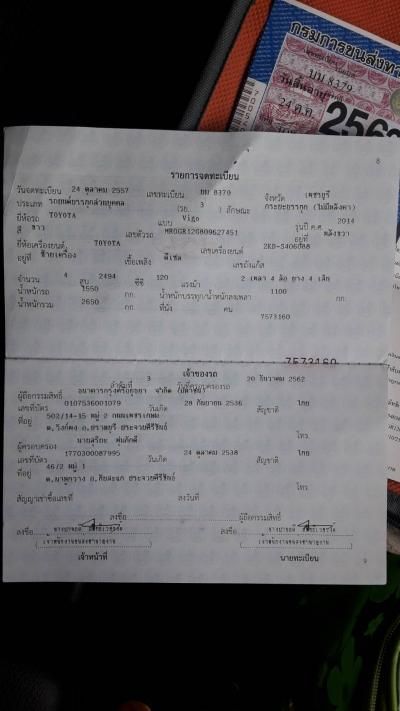 กรมการขนส่งทา
บบ 8379
วันสิ้นอายุ
24 ต.ค.
256
8
รายการจดทะเบียน
วันจดทะเบียน 24 ตุลาคม 2557 เลขทะเบียน บม 8370 จังหวัด เพชรบุรี
ประเภท รถยนต์บรรทุกส่วนบุคคล (รย. 3 ) ลักษณะ กระบะบรรทุก (ไม่มีหลังคา)
ยี่ห้อรถ TOYOTA แบบ Vigo รุ่นปี ค.ศ. 2014
สี ขาว เลขตัวรถ MR0GR12G809627451 อยู่ที่
ยี่ห้อเครื่องยนต์ TOYOTA เลขเครื่องยนต์ 2KD-S406088
อยู่ที่ ซ้ายเครื่อง เชื้อเพลิง ดีเซล เลขถังแก๊ส
จำนวน 4 สูบ 2494 ซีซี 120 แรงม้า 2 เพลา 4 ล้อ ยาง 4 เส้น
น้ำหนักรถ 1550 กก. น้ำหนักบรรทุก/น้ำหนักลงเพลา 1100 กก.
น้ำหนักรวม 2650 กก. ที่นั่ง คน
7573160
7573160
เจ้าของรถ
ลำดับที่ 3 วันที่ครอบครองรถ 20 ธันวาคม 2562
ผู้ถือกรรมสิทธิ์ ธนาคารกรุงศรีอยุธยา จำกัด (มหาชน)
เลขที่บัตร 0107536001079 วันเกิด 28 กันยายน 2536 สัญชาติ ไทย
ที่อยู่ 502/14-15 หมู่ 2 ถนนเพชรเกษม
ต.วังก์พง อ.ปราณบุรี ประจวบคีรีขันธ์ โทร.
ผู้ครอบครอง
เลขที่บัตร 1770300087995 วันเกิด 24 ตุลาคม 2538 สัญชาติ ไทย
ที่อยู่ 46/2 หมู่ 1
ประจวบคีรีขันธ์ โทร.
สัญญาเช่าซื้อเลขที่ ลงวันที่
ลงชื่อ ผู้ถือกรรมสิทธิ์
ลงชื่อ ลงชื่อ
เจ้าหน้าที่ นายทะเบียน
9